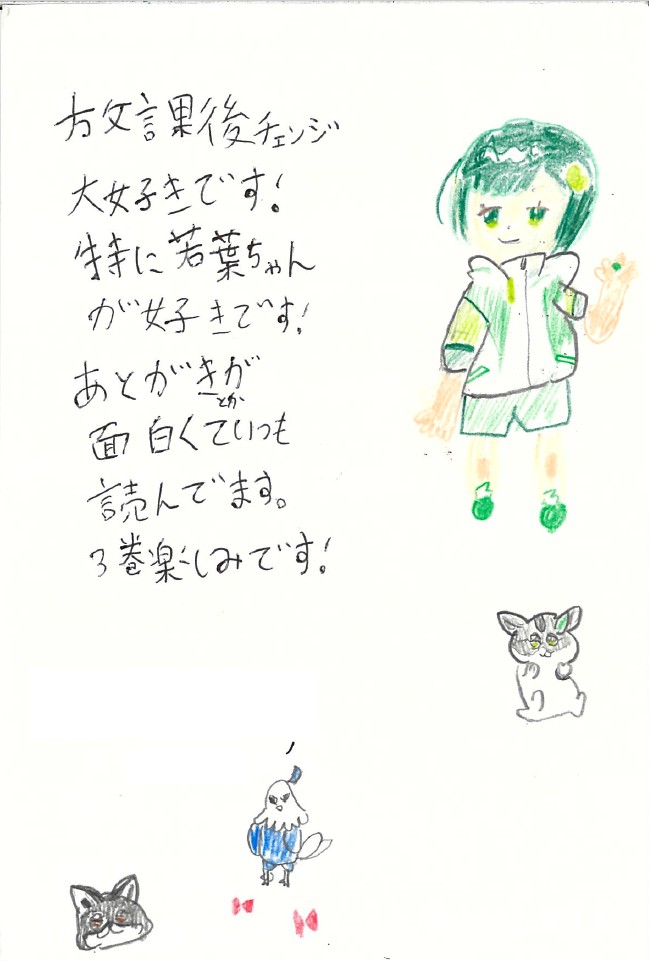 放課後チェンジ
大好きです!
特に若葉ちゃん
が好きです!
あとがきが
とか
面白くていつも
読んでます。
3巻楽しみです!